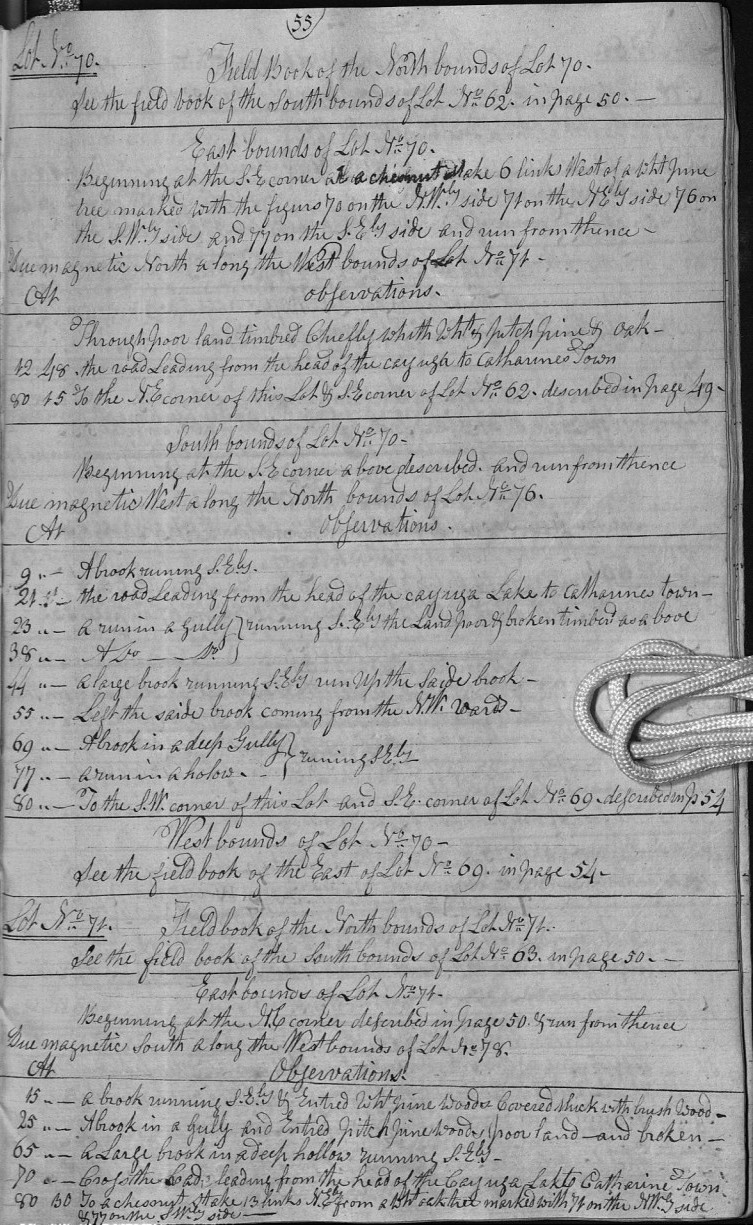 55
Lot No 70.
Field Book of the North bounds of Lot 70.
See the field book of the South bounds of Lot No 62. in page 50. —
East bounds of Lot No 70.
Beginning at the S.E corner at a chesnut stake 6 links West of a Wht pine
tree marked with the figurs 70 on the N.Wly side 71 on the N.Ely side 76 on
the S.Wly side and 77 on the S.Ely side and run from thence —
Due magnetic North along the West bounds of Lot No 71 —
At observations.
Through poor land timbred Chiefly whith Wht & pitch pine & oak —
12 48 the road Leading from the head of the cayuga to Catharines Town
80 15 To the N.E corner of this Lot & S.E corner of Lot No 62. described in page 49 —
South bounds of Lot No 70 —
Beginning at the S.E corner above described. and run from thence
Due magnetic West along the North bounds of Lot No 76.
At observations.
9 " — A brook running S.Ely.
21 — the road Leading from the head of the cayuga Lake to Catharines town —
23 " — a run in a gully } running S.Ely the Land poor & broken timberd as above
38 " — A Do — Do }
44 " — a large brook running S.Ely run up the saide brook —
55 " — Left the saide brook coming from the N.W. ward —
69 " — A brook in a deep Gully } runing S.Ely
77 " — a run in a holow — }
80 " — To the S.W. corner of this Lot and S.E. corner of Lot No 69 described in p 54
West bounds of Lot No 70 —
See the field book of the East of Lot No 69. in page 54 —
Lot No 71. Field book of the North bounds of Lot No 71.
See the field book of the South bounds of Lot No 63. in page 50. —
East bounds of Lot No 71 —
Beginning at the N.E corner described in page 50 & run from thence
Due magnetic South along the West bounds of Lot No 78.
At Observations.
15 " — a brook running S.Ely & Entred Wht pine woods Covered thick with brush Wood —
25 " — A brook in a Gully and Entred pitch pine woods, poor land — and broken —
65 " — a Large brook in a deep hollow running S.Ely —
70 " — Cross the Road leading from the head of the Cayuga Lake to Catharines Town
80 30 To a chesonut stake 13 links N.Ely from a Wht oak tree marked with 71 on the N.Wly side
& 77 on the S.Wly side —